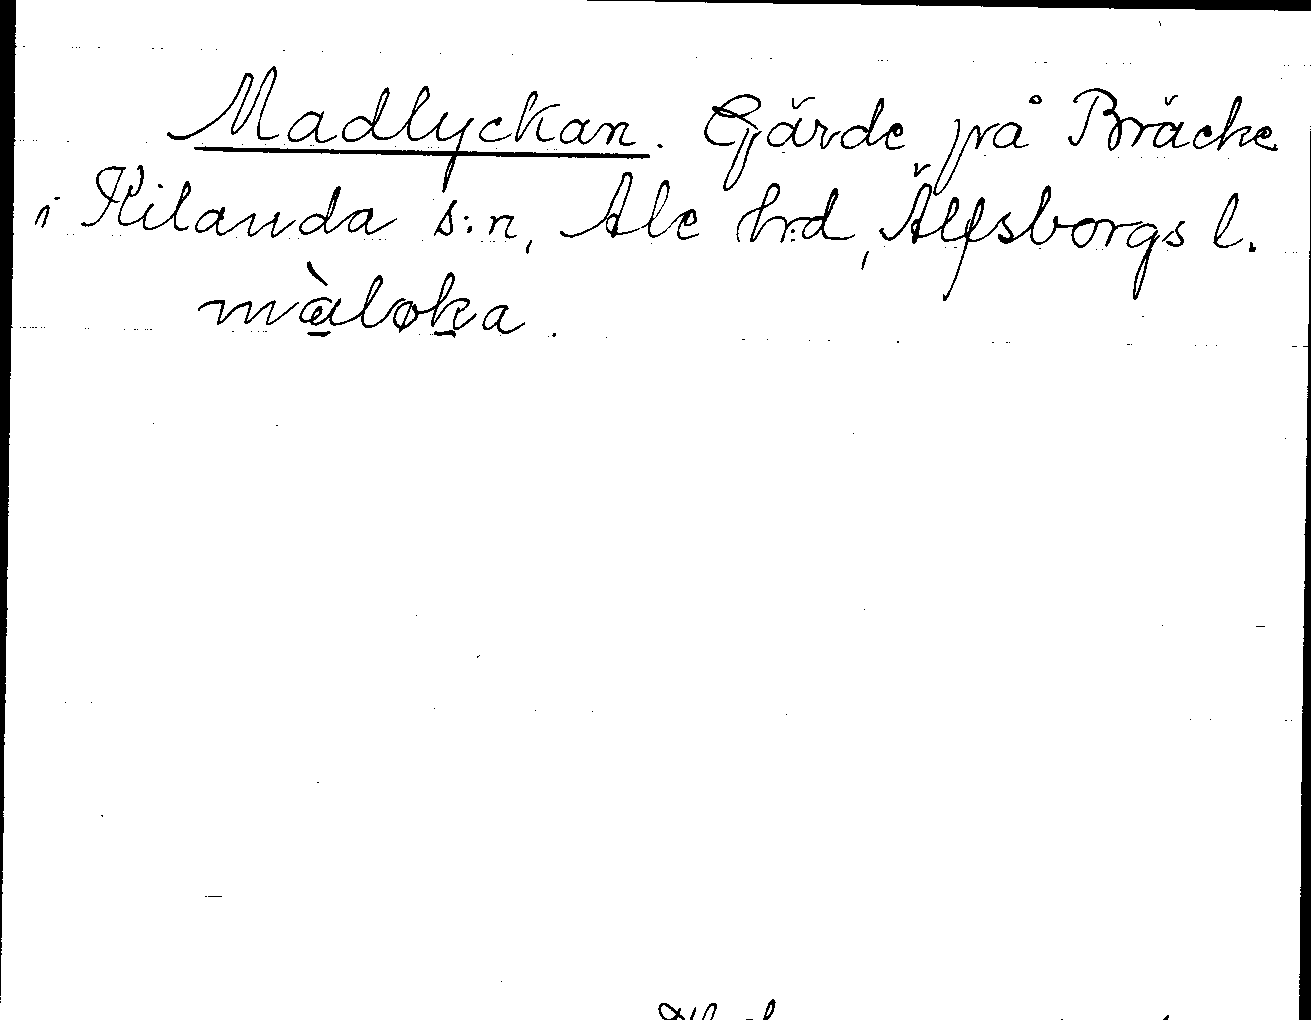 Madlyckan. Gärde på Bräcke
i Kilanda s:n, Ale hrd, Älfsborgs l.
màløka.